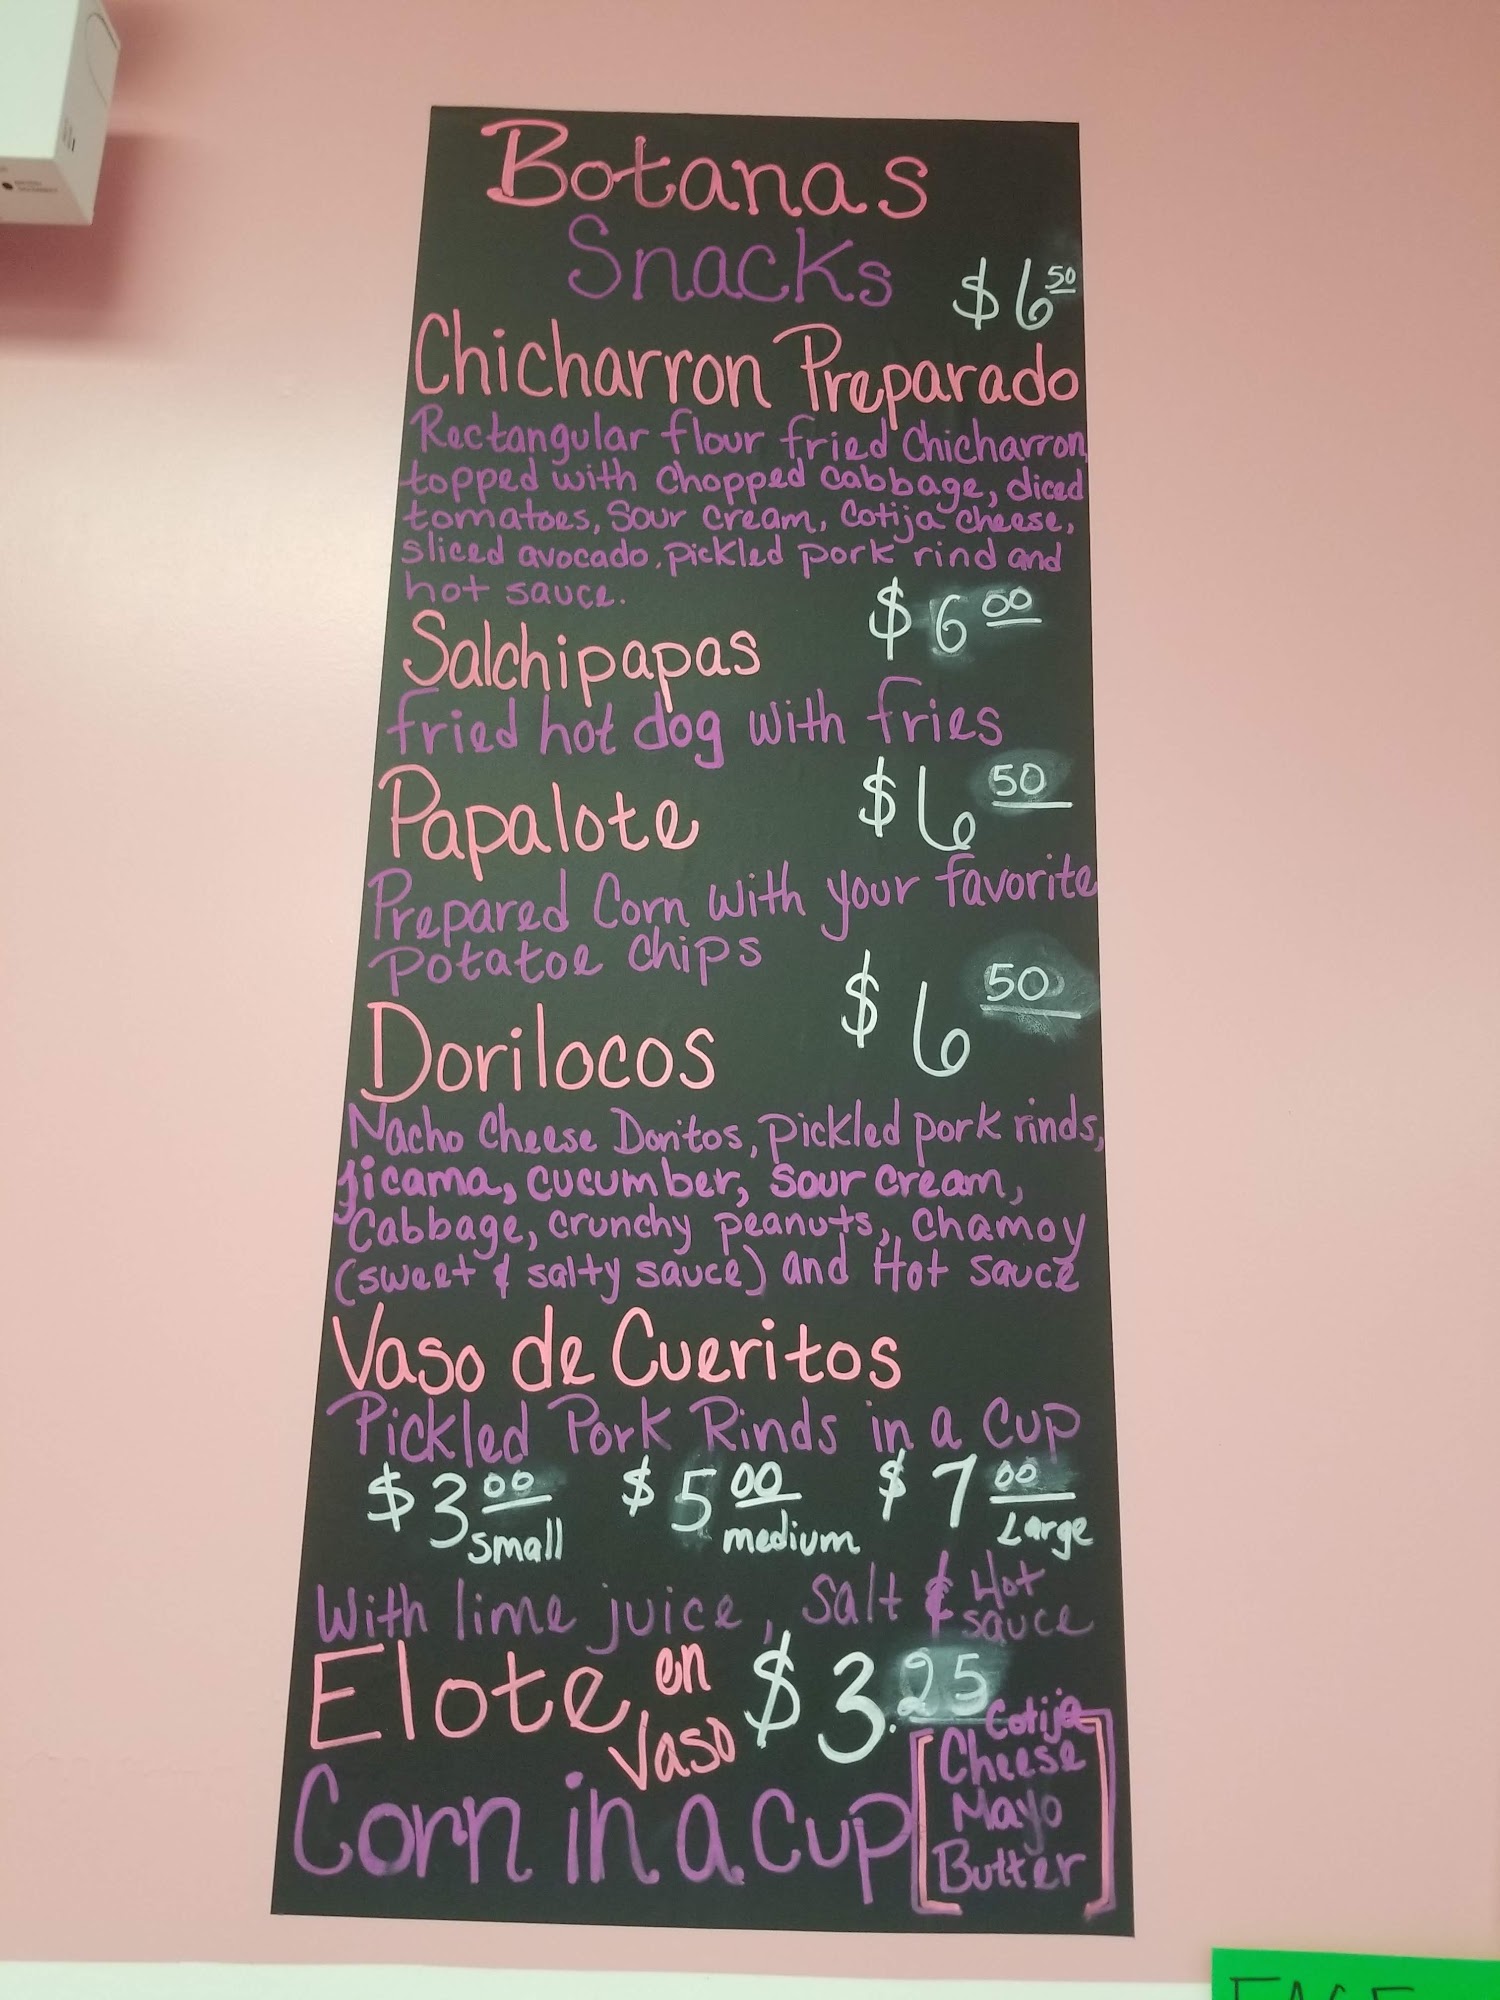 Botanas
Snacks
$6 50
Chicharron Preparado
Rectangular flour fried Chicharron,
topped with chopped cabbage, diced
tomatoes, sour cream, Cotija cheese,
sliced avocado, pickled pork rind and
hot sauce.
$6 00
Salchipapas
fried hot dog with fries
Papalote $6 50
Prepared Corn with your favorite
potatoe chips
Dorilocos $6 50
Nacho Cheese Doritos, pickled pork rinds,
jicama, cucumber, sour cream,
Cabbage, crunchy peanuts, Chamoy
(sweet & salty sauce) and Hot Sauce
Vaso de Cueritos
Pickled Pork Rinds in a Cup
$3 00 small $5 00 medium $7 00 Large
With lime juice, Salt & Hot sauce
Elote en Vaso $3.25
Corn in a Cup
[Cotija
Cheese
Mayo
Butter]